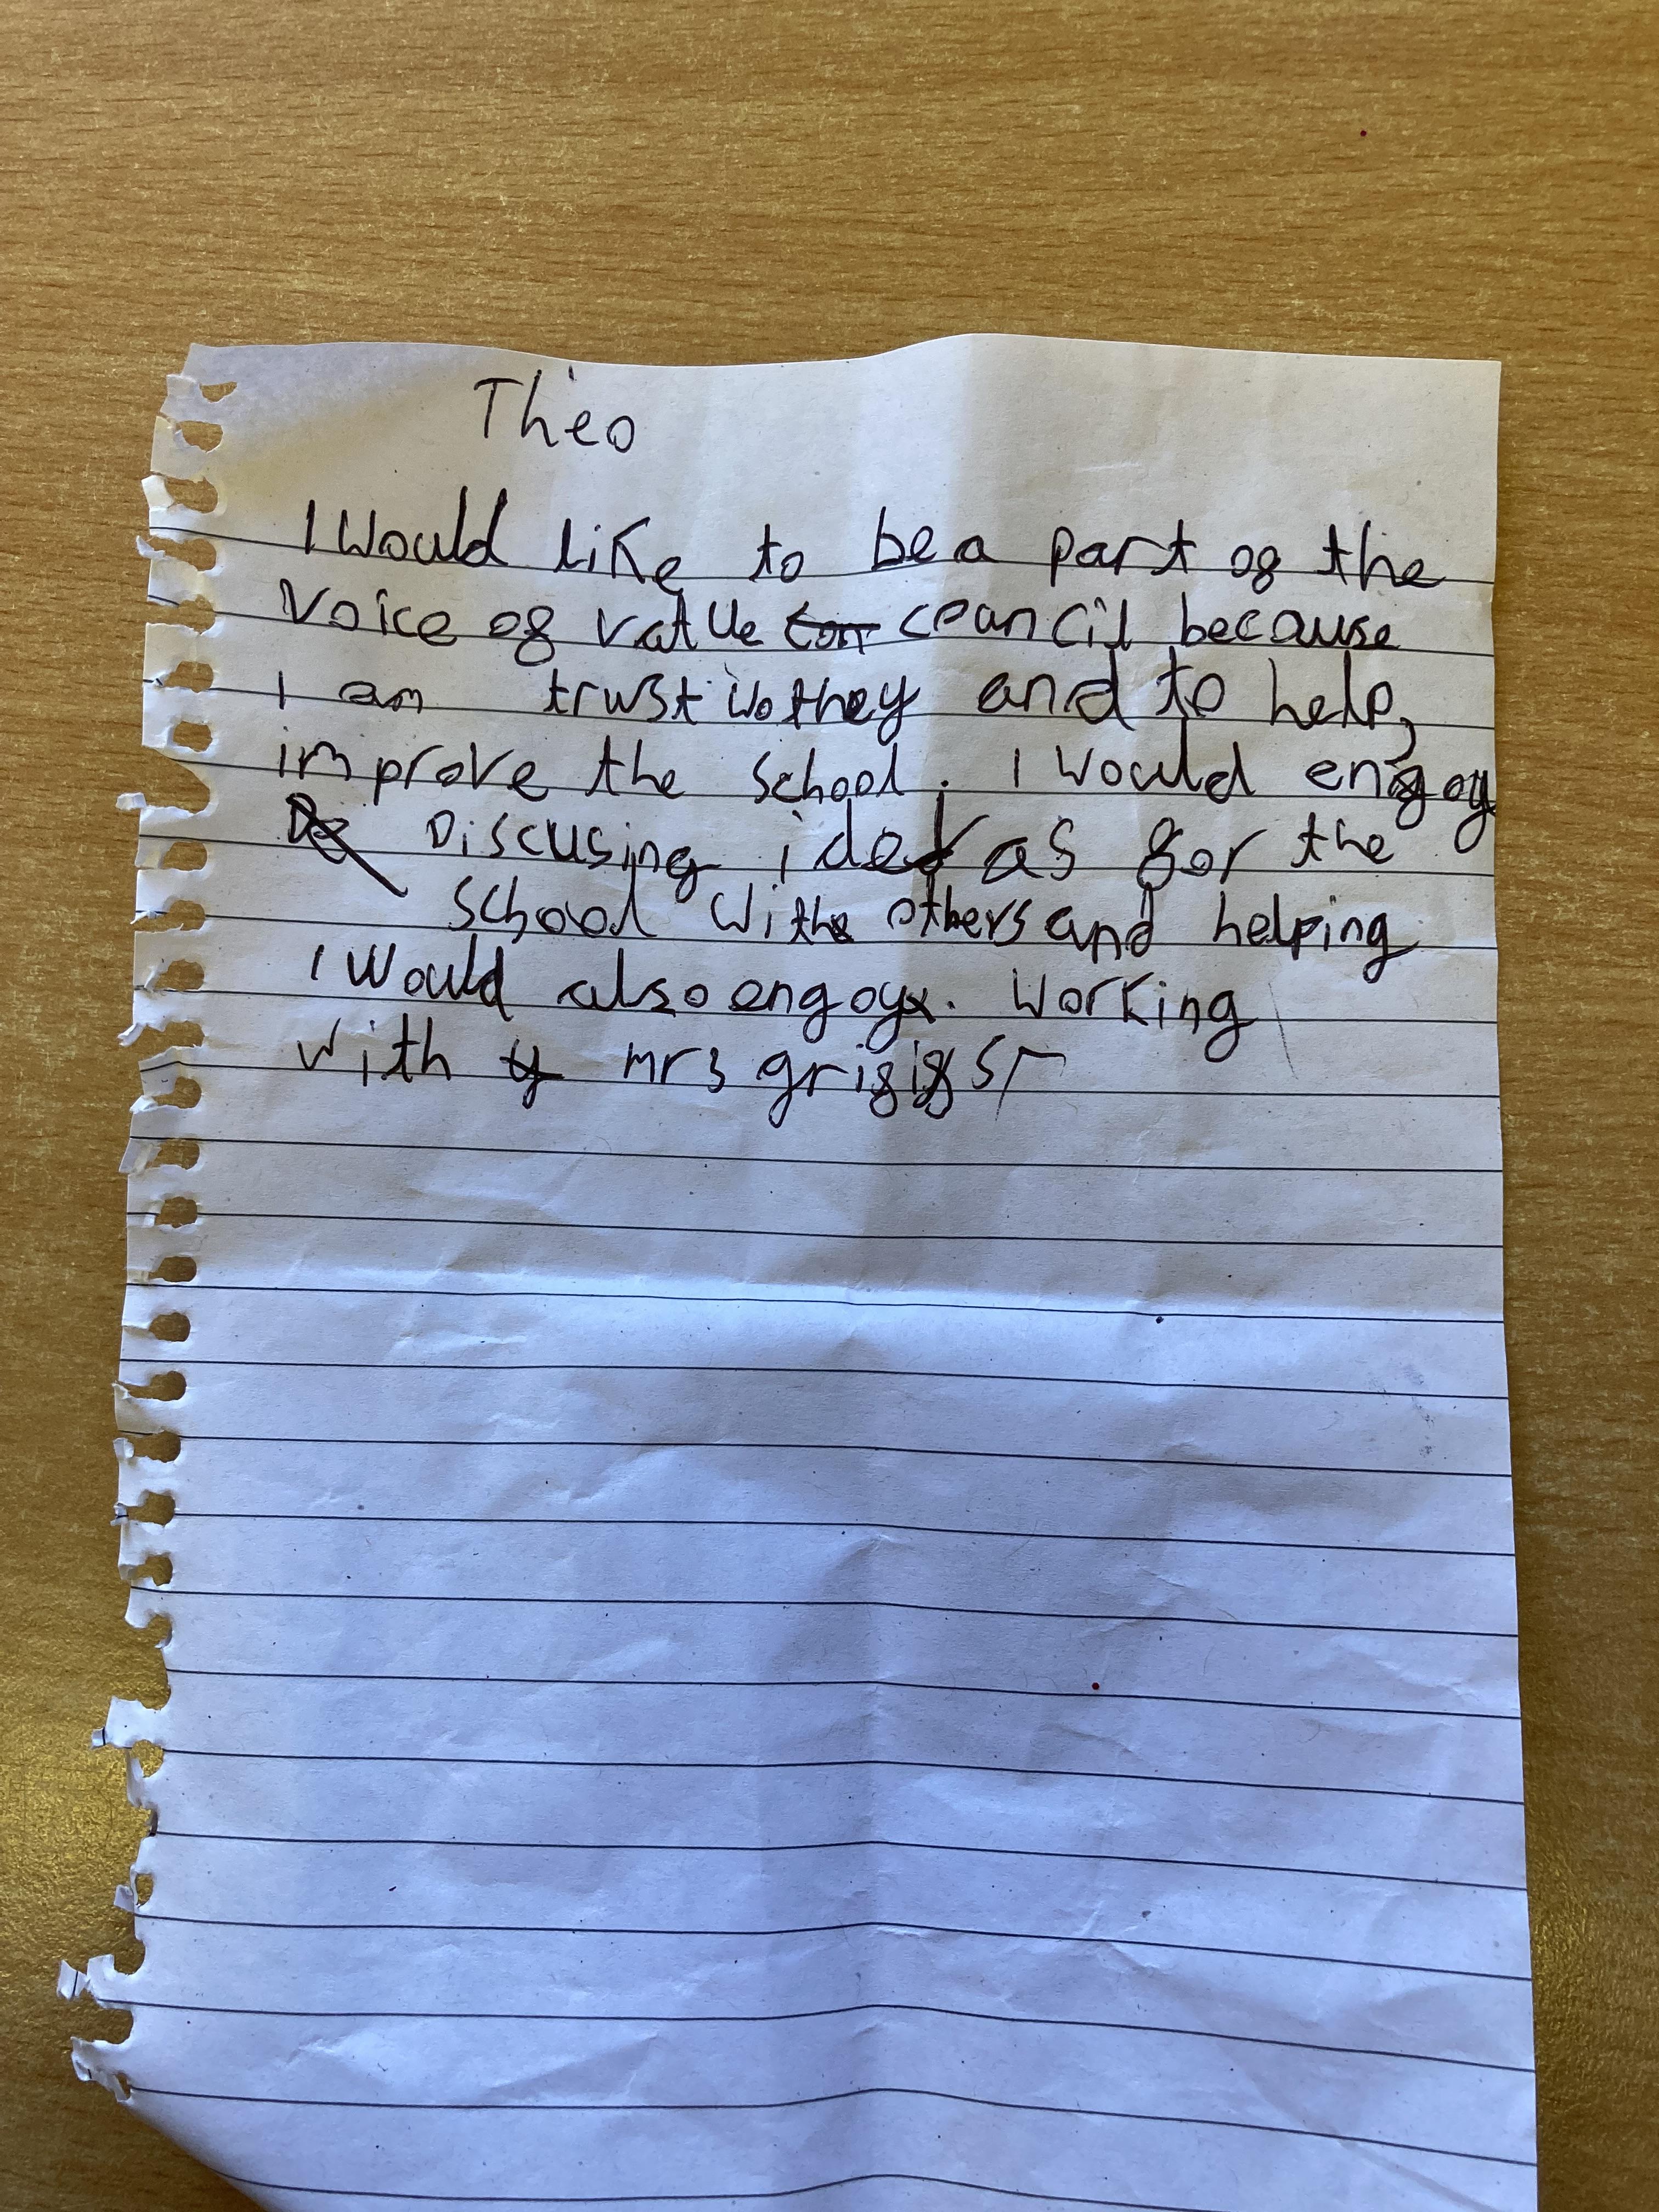 Theo
I would like to be a part of the
voice of value council because
I am trustwothey and to help,
improve the school. I would engoy
Discusing ideas for the
school withe others and helping
I would also engoy. working
with mrs